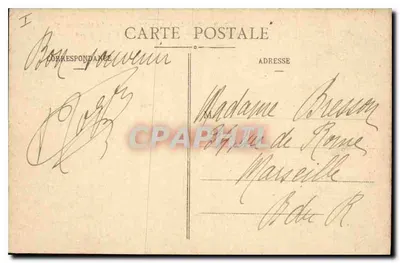 I
CARTE POSTALE
CORRESPONDANCE
ADRESSE
Bon souvenir
Madame Bresson
rue de Rome
Marseille
B du R
CPAPHIL